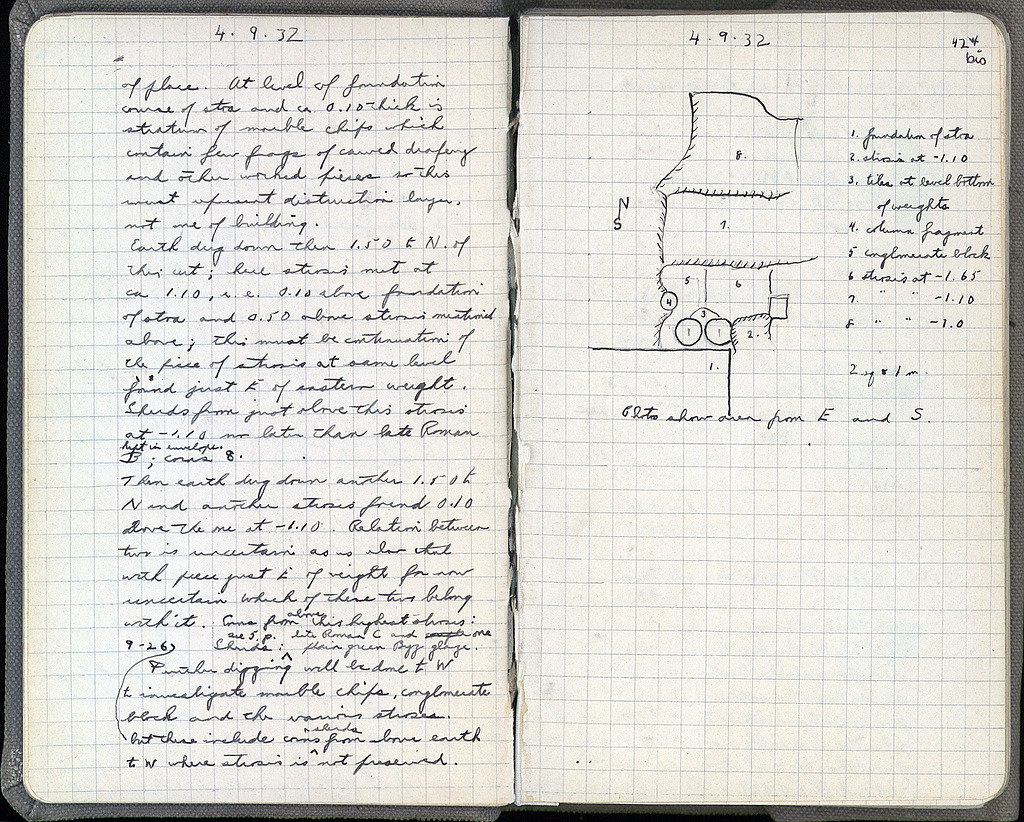 4.9.32
of place. At level of foundation
course of stoa and ca 0.10 thick is
stratum of marble chips which
contain few frags of carved drapery
and other worked pieces so this
must represent destruction layer,
not one of building.
Earth dug down then 1.50 to N. of
this cut; here strosis met at
ca 1.10, i.e. 0.10 above foundation
of stoa and 0.50 above strosis mentioned
above; this must be continuation of
the piece of strosis at same level
found just E of eastern weight.
Sherds from just above this strosis
at -1.10 no later than late Roman
kept in envelope.
B; coins 8.
Then earth dug down another 1.50 to
N and another strosis found 0.10
above the one at -1.10. Relation between
two is uncertain as is also that
with piece just E of weights for now
uncertain which of these two belong
with it. Coins from above this highest strosis:
see 5. p. late Roman C and one
9-26, Sherds: plain green Byz glaze.
Further digging will be done to W
to investigate marble chips, conglomerate
block and the various stroses.
but these include coins sherds from above earth
to W where strosis is not preserved.
4.9.32
424
bis
N
S
8.
7.
5
6
4
3
1
1
2.
1.
1. foundation of stoa
2. strosis at -1.10
3. tiles at level bottom
of weights
4. column fragment
5 conglomerate block
6 strosis at -1.65
7. " " -1.10
8 " " -1.0
2 sq = 1 m.
Photos show area from E and S.